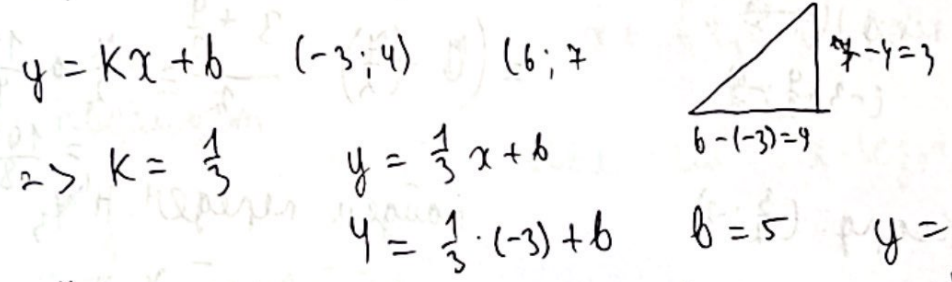 y = kx + b (-3; 4) (6; 7 7-4=3
6-(-3)=9
=> k = 1/3 y = 1/3 x + b
4 = 1/3 · (-3) + b b = 5 y =